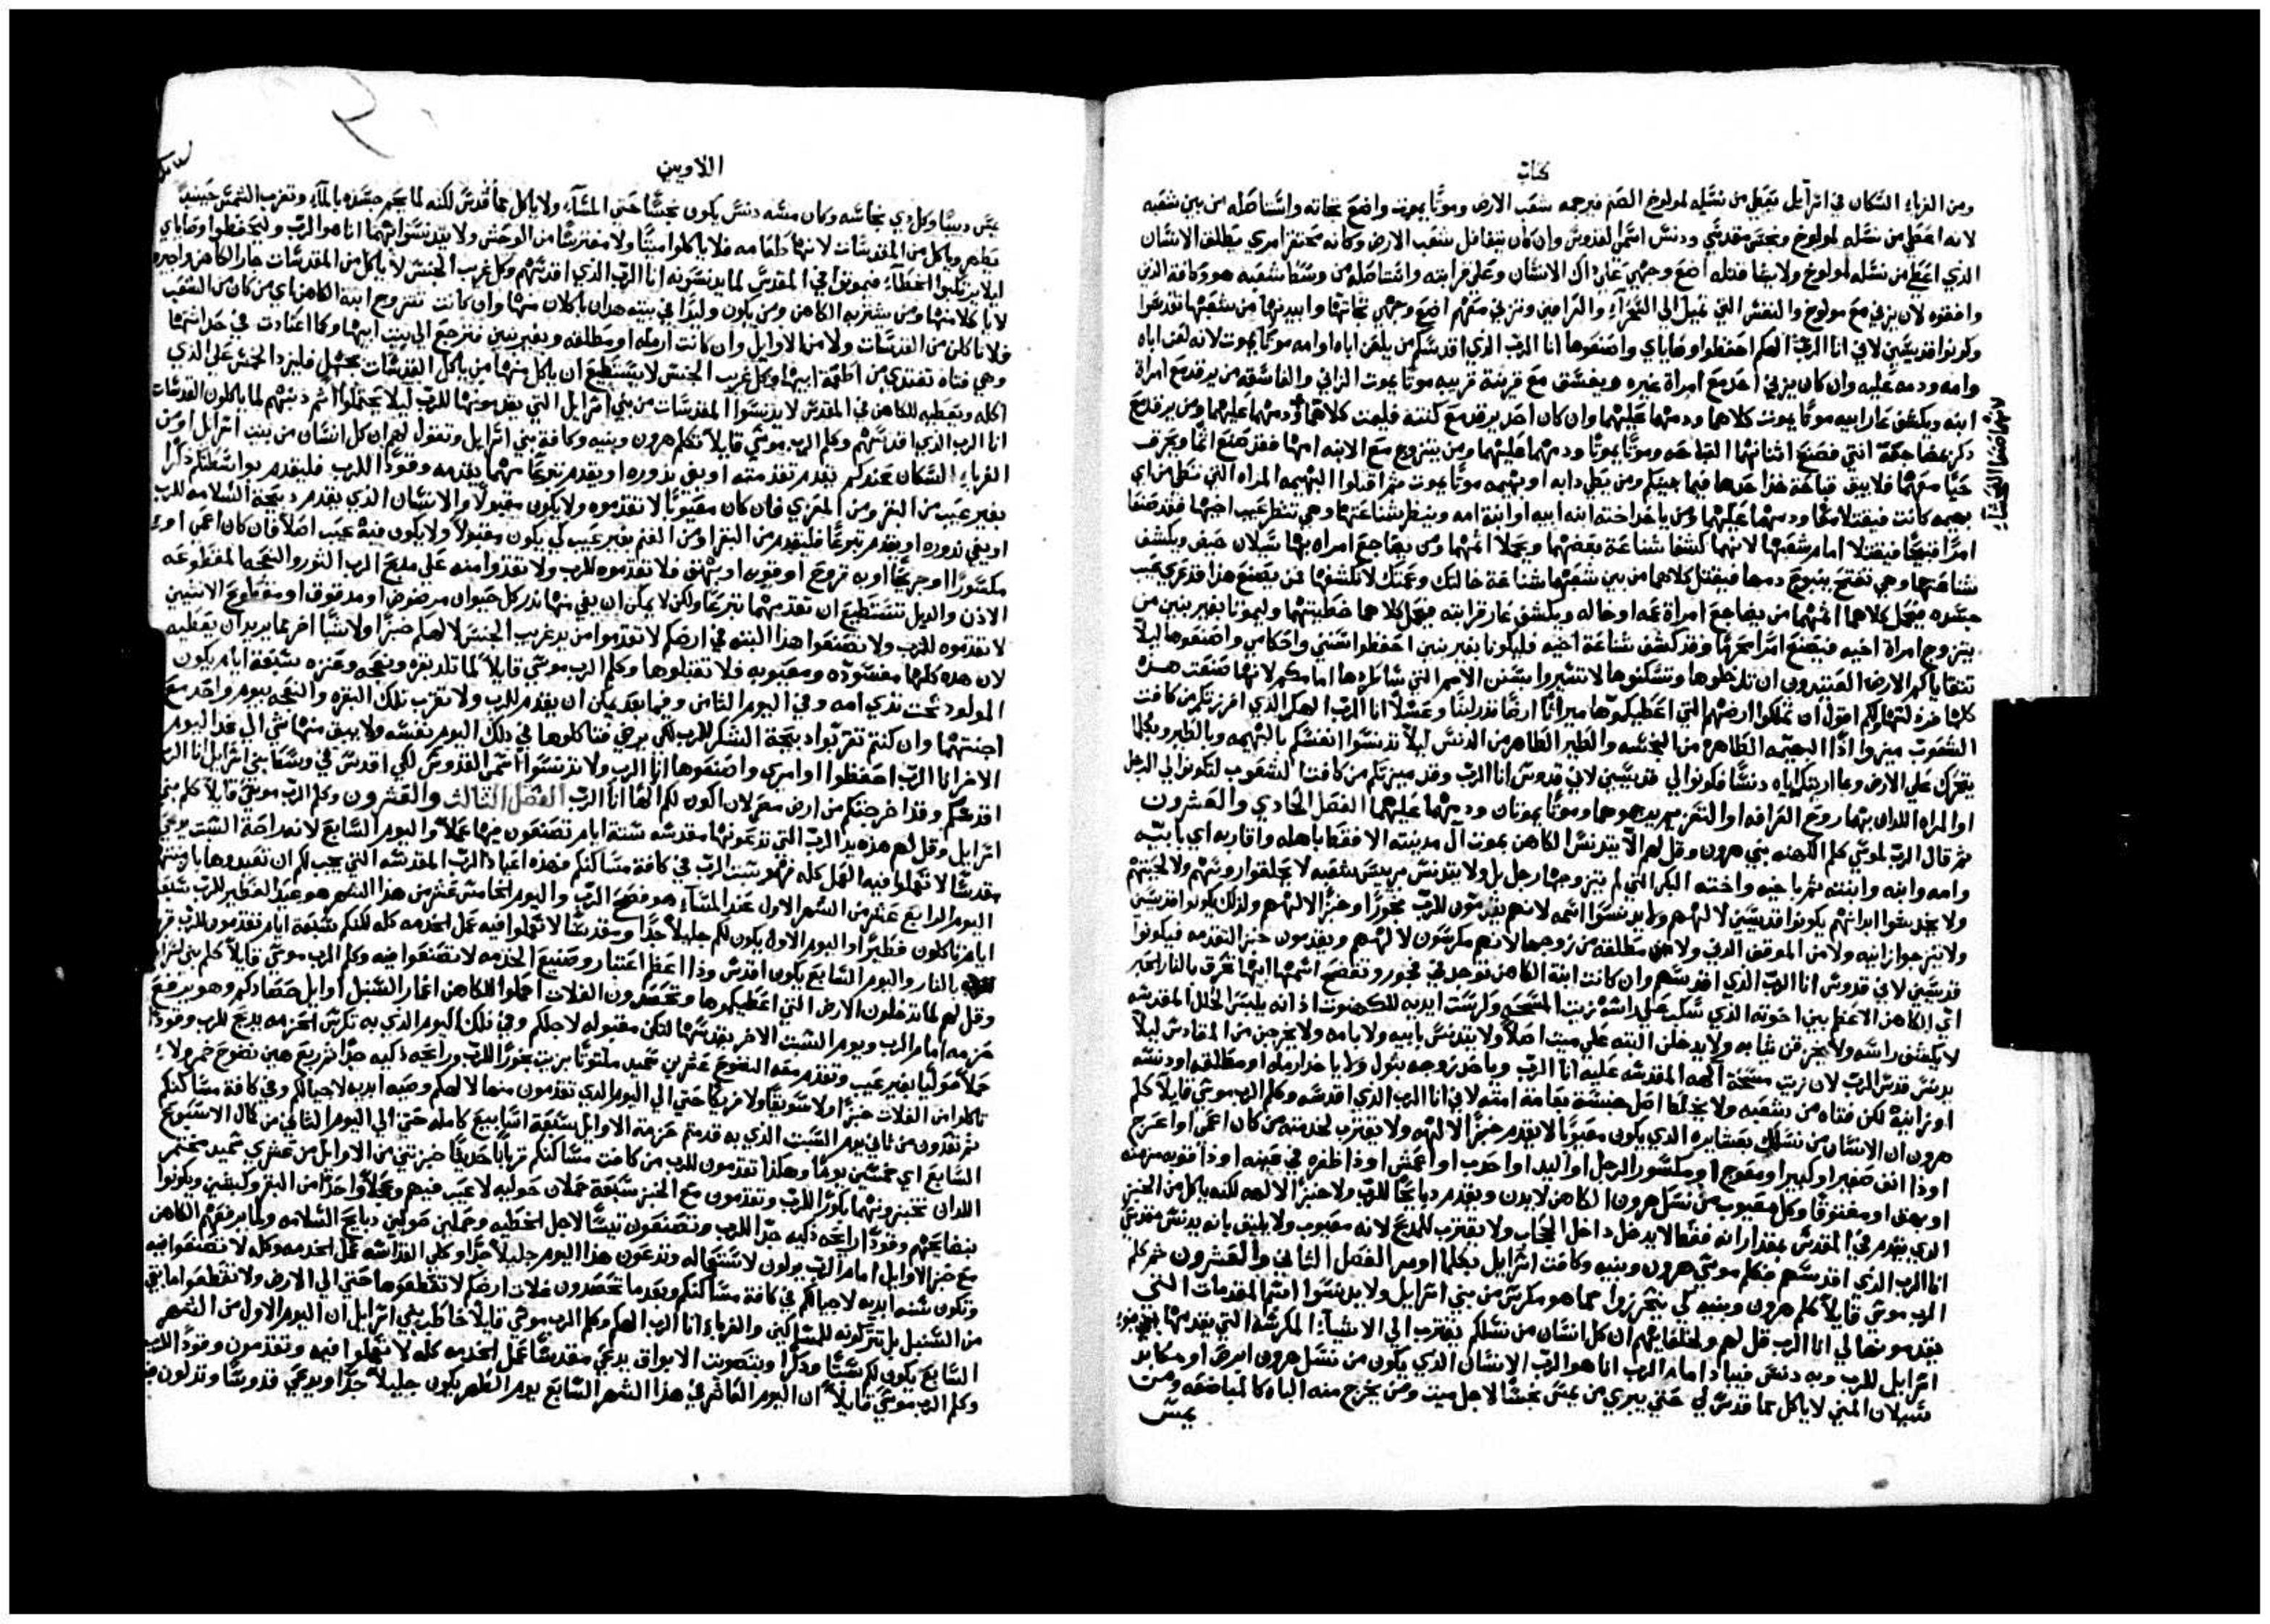 كتاب
ومن الغرباء السكان في اسرايل يعطي من نسله لمولوخ الصنم فيرجمه شعب الارض وموتًا يموت واضع تجاته واستاصله من بين شعبه
لانه اعطي من نسله لمولوخ ونجس مقدسي ودنس اسمي القدوس وان كان يتغافل شعب الارض وكانه محتقر امري يطلق الانسان
الذي اعطي من نسله لمولوخ ولا يشا قتله اضع وجهي علي ذاك الانسان وعلي قرابته واستاصله من وسط شعبه هو وكافة الذين
وافقوه لان يزني مع مولوخ والنفس التي تميل الي السحراء والعرافين وتزني معهم اضع وجهي تجاتها وابيدها من شعبها تقدسوا
وكونوا قديسين لاني انا الرب الهكم احفظوا وصاياي واصنعوها انا الرب الذي اقدسكم من يلعن اباه او امه موتًا يموت لانه لعن اباه
وامه ودمه عليه وان كان يزني احد مع امراة غيره ويفسق مع قرينة قريبه موتًا يموت الزاني والفاسقه من يرقد مع امراة
ابيه ويكشف عار ابيه موتًا يموت كلاهما ودمهما عليهما وان كان احد يرقد مع كنته فليمت كلاهما ودمهما عليهما ومن يرقد مع
ذكر مضاجعة انثي فصنع اثنانهما القباحه وموتًا يموتا ودمهما عليهما ومن يتزوج مع الابنه امها فقد صنع اثمًا ويحرق
حيًا معهما فلا يبق قباحة هذا حدها فيما بينكم ومن يفعل دابه او بهيمه موتًا يموت ثم اقتلوا البهيمه المراه التي تفعل من اي
بهيمه كانت فيقتلا معًا ودمهما عليهما ومن ياخذ اخته ابنه ابيه او ابنة امه وينظر شناعتها وهي تنظر عيب اخيها فقد صنعا
امرًا قبيحًا فيقتلا امام شعبها لانهما كشفا شناعة بعضهما ويحملا اثمهما ومن يضاجع امراه بها سيلان حيض ويكشف
شناعتها وهي تفتح ينبوع دمها فيقتل كلاهما من بين شعبهما شناعة خالتك وعمتك لا تكشفها فمن يصنع هذا قد عري عيب
جسده يحمل كلاهما اثمهما من يضاجع امراة عمه او خاله ويكشف عار قرابته يحمل كلاهما خطيتهما وليموتا بغير بنين من
يتزوج امراة اخيه فيصنع امرًا محرمًا وقد كشف شناعة اخيه فليكونا بغير بنين احفظوا سنني واحكامي واصنعوها ليلا
تتقاياكم الارض العتيدون ان تدخلوها وتسكنوها لا تسيروا بسنن الامم التي ساطردها امامكم لانها صنعت هذه
كلها فرذلتها ولكم اقول ان تملكوا ارضهم التي اعطيكموها ميراثًا ارضًا تدر لبنًا وعسلاً انا الرب الهكم الذي افرزتكم من كافت
الشعوب ميزوا اذًا البهيمه الطاهره من النجسه والطير الطاهر من الدنس ليلا تدنسوا انفسكم بالبهيمه وبالطير وبكلما
يتحرك علي الارض وما اريتكم اياه دنسًا فكونوا لي قديسين لاني قدوس انا الرب وقد ميزتكم من كافت الشعوب لتكونوا لي الرجل
او المراه اللذان بهما روح العرافه او التنجيم يرجموهما وموتًا يموتان ودمهما عليهما الفصل الحادي والعشرون
ثم قال الرب لموسي كلم الكهنه بني هرون وقل لهم الا يتدنس الكاهن بموت ال مدينته الا فقط باهله واقاربه اي بابيه
وامه وابنه وابنته ثم باخيه واخته البكر التي لم يتزوجها رجل بل ولا يتدنس برييس شعبه لا يحلقوا روسهم ولا لحيتهم
ولا يخدشوا ابدانهم يكونوا قديسين لالههم ولا يدنسوا اسمه لانهم يقدمون للرب بخورًا وخبزًا لالههم ولذلك يكونوا قديسين
ولا يتزوجوا زانيه ولا من الموقف الدني ولا من مطلقه من زوجها لانهم مكرسون لالههم ويقدمون خبز التقدمه فيكونوا
قديسين لاني قدوس انا الرب الذي اقدسهم وان كانت ابنة الكاهن توجد في فجور وتفضح اسم ابيها تحرق بالنار الحبر
اي الكاهن الاعظم بين اخوته الذي سكب علي راسه زيت المسحه وكرست ايديه للكهنوت اذ انه يلبس الحلل المقدسه
لا يكشف راسه ولا يخرق ثيابه ولا يدخل البته علي ميت اصلاً ولا يتدنس بابيه ولا بامه ولا يخرجن من المقادس ليلاً
يدنس قدس الرب لان زيت مسحة الهه المقدسه عليه انا الرب وياخذ زوجه بتول ولا ياخذ ارمله او مطلقه او دنسه
او زانيه لكن فتاه من شعبه ولا يخلط اصل جنسه بعامة امته لاني انا الرب الذي اقدسه وكلم الرب موسي قايلاً كلم
هرون ان الانسان من نسلك بعشايره الذي يكون معيوبًا لا يقدم خبزًا لالهه ولا يقترب لخدمته من كان اعمي او اعرج
او ذا انف صغير او كبير او معوج او مكسور الرجل او اليد او احدب او اعمش او ذا ظفره في عينه او ذا قوبه مزمنه
او بهق او مفتوقًا وكل معيوب من نسل هرون الكاهن لا يدن ويقدم دبايحًا للرب ولا خبزًا لالهه لكنه ياكل من الخبز
الذي يقدم في المقدس بمقدار انه فقط لا يدخل داخل الحجاب ولا يقترب للمدبح لانه معيوب ولا يليق بانه يدنس مقدسي
انا الرب الذي اقدسهم فكلم موسي هرون وبنيه وكافت اسرايل بكلما اومر الفصل الثاني والعشرون ثم كلم
الرب موسي قايلاً كلم هرون وبنيه لكي يتحرزوا مما هو مكرس من بني اسرايل ولا يدنسوا اسم المقدسات التي
يقدمونها لي انا الرب قل لهم ولخلفايهم ان كل انسان من نسلكم يقترب الي الاشياء المكرسة التي يقدمها بني
اسرايل للرب وبه دنس فيباد امام الرب انا هو الرب الانسان الذي يكون من نسل هرون ابرص او مكابد
سيلان المني لا ياكل مما قدس لي حتي يبري من يمس نجسًا لاجل ميت ومن يخرج منه الباه كالمباضعه ومن
يمس
اللاويين
يمس دبيبًا وكل ذي نجاسه وكان مسه دنس يكون نجسًا حتي المساء ولا ياكل مما قدس لكنه لما يحم جسده بالماء وتغرب الشمس حينيذ
يطهر وياكل من المقدسات لانها طعامه فلا ياكلوا ميتًا ولا مفترسًا من الوحش ولا يتدنسوا بهما انا هو الرب وليحفظوا وصاياي
ليلا يرتكبوا الخطاء فيموتوا في المقدس لما يدنسونه انا الرب الذي اقدسهم وكل غريب الجنس لا ياكل من المقدسات جار الكاهن واجيره
لا ياكلا منها ومن يشتريه الكاهن ومن يكون وليدًا في بيته هدان ياكلان منها وان كانت تتزوج ابنة الكاهن باي من كان من الشعب
فلا تاكل من القدسات ولا من الاوايل وان كانت ارمله او مطلقه وبغير بنين فترجع الي بيت ابيها وكما اعتادت في حداثتها
وهي فتاه تغتدي من اطعمة ابيها وكل غريب الجنس لا يستطيع ان ياكل منها من ياكل القدسات بجهل فليزد الخمس علي الذي
اكله ويعطيه للكاهن في المقدس لا يدنسوا المقدسات من بني اسرايل التي يقدمونها للرب ليلا يحتملوا اثم ذنبهم لما ياكلون القدسات
انا الرب الذي اقدسهم وكلم الرب موسي قايلاً تكلم هرون وبنيه وكافة بني اسرايل وتقول لهم ان كل انسان من بيت اسرايل او من
الغرباء السكان عندكم يقدم تقدمته او يفي نذوره او يقدم تبرعًا مهما يقدمه وقودًا للرب فليقدم بواسطتكم ذكرًا
بغير عيب من البقر ومن المعزي فان كان معيوبًا لا تقدموه ولا يكون مقبولاً والانسان الذي يقدم دبيحة السلامه للرب
او يفي نذوره او يقدم تبرعًا فليقدم من البقر او من الغنم بغير عيب لكي يكون مقبولاً ولا يكون فيه عيب اصلاً فان كان اعمي او
مكسورًا او جريحًا او به قروح او قوبه او بهق فلا تقدموه للرب ولا تقدوا منه علي مدبح الرب الثور والنعجه المقطوعه
الاذن والديل تستطيع ان تقدمهما تبرعًا ولكن لا يمكن ان يفي منها نذر كل حيوان مرضوض او مدقوق او مقطوع الانثيين
لا تقدموه للرب ولا تصنعوا هذا البته في ارضكم لا تقدموا من يد غريب الجنس لالهكم خبزًا ولا شيًا اخر مما يريد ان يعطيه
لان هذه كلها مفسوده ومعيوبه فلا تقبلوها وكلم الرب موسي قايلاً لما تلد بقره ونعجه وعنزه سبعة ايام يكون
المولود تحت ثدي امه وفي اليوم الثامن وفيما بعد يمكن ان يقدم للرب ولا تقرب تلك البقره والنعجه بيوم واحد مع
اجنتهما وان كنتم تقربوا دبيحة الشكر للرب لكي يرضي فتاكلوها في دلك اليوم نفسه ولا يبق منها شي الي غد اليوم
الاخر انا الرب احفظوا اوامري واصنعوها انا الرب ولا تدنسوا اسمي القدوس لكي اقدس في وسط بني اسرايل انا الرب
اقدسكم وقد اخرجتكم من ارض مصر لان اكون لكم الهًا انا الرب الفصل الثالث والعشرون وكلم الرب موسي قايلاً كلم بني
اسرايل وقل لهم هذه اعياد الرب التي تدعونها مقدسه ستة ايام تصنعون فيها عملاً واليوم السابع لانه راحة السبت يدعي
مقدسًا لا تعملوا فيه العمل كله فهو سبت الرب في كافة مساكنكم فهذه اعياد الرب المقدسه التي يجب لكم ان تعيدوها باوقاتها
اليوم الرابع عشر من الشهر الاول عند المساء هو فصح الرب واليوم الخامس عشر من هذا الشهر هو عيد الفطير للرب سبعة
ايام تاكلون فطيرًا واليوم الاول يكون لكم جليلاً جدًا ومقدسًا لا تعملوا فيه عمل الخدمه كله لكنكم سبعة ايام تقدمون للرب
بالنار واليوم السابع يكون اقدس وذا اعظم اعتبار وصنيع الخدمه لا تصنعوا فيه وكلم الرب موسي قايلاً كلم بني اسرايل
وقل لهم لما تدخلون الارض التي اعطيكموها وتحصدون الغلات احملوا للكاهن اغمار السنبل اوايل حصادكم وهو يرفع
حزمه امام الرب ويوم السبت الاخر يقدسها لتكن مقبوله لاجلكم وفي ذلك اليوم الذي به تكرس الحزمه يدبح للرب وقودًا
حملاً حوليًا بغير عيب وتقدم معه النضوح عشرين سميد ملتوتًا بزيت بخورًا للرب ورايحه ذكيه جدًا ثم ربع هين نضوح خمر ولا
تاكلوا من الغلات خبزًا ولا سويقًا ولا فريكًا حتي الي اليوم الذي تقدمون منها لالهكم وصيه ابديه لاجيالكم وفي كافة مساكنكم
ثم تعدون من ثاني يوم السبت الذي به قدمتم حزمة الاوايل سبعة اسابيع كامله حتي الي اليوم الثاني من كمال الاسبوع
السابع اي خمسين يومًا وهكذا تقدمون للرب من كافت مساكنكم قربانًا جديدًا خبزتين من الاوايل من عشري سميد مختمر
اللدان تخبزونهما بكورًا للرب وتقدمون مع الخبز سبعة حملان حوليه لا عيب فيهم وعجلاً واحدًا من البقر وكبشين ويكونوا
بنضايحهم وقودًا رايحه ذكيه جدًا للرب وتصنعون تيسًا لاجل الخطيه وحملين حوليين دبايح السلامه ولما يرفعهم الكاهن
مع خبز الاوايل امام الرب يولون لاستعماله وتدعون هذا اليوم جليلاً جدًا وكلي القداسه عمل الخدمه وكله لا تصنعوا فيه
وتكون سنه ابديه لاجيالكم في كافة مساكنكم وبعد ما تحصدون غلات ارضكم لا تقطعوها حتي الي الارض ولا تقطعوا ما بقي
من السنبل بل تتركونه للمساكين والغرباء انا الرب الهكم وكلم الرب موسي قايلاً خاطب بني اسرايل ان اليوم الاول من الشهر
السابع يكون لكم سبتًا وذكرًا وبتصويت الابواق يدعي مقدسًا عمل الخدمه كله لا تعملوا فيه وتقدمون وقودًا للرب
وكلم الرب موسي قايلاً ان اليوم العاشر في هذا الشهر السابع يوم الطهر يكون جليلاً جدًا ويدعي قدوسًا وتذلون